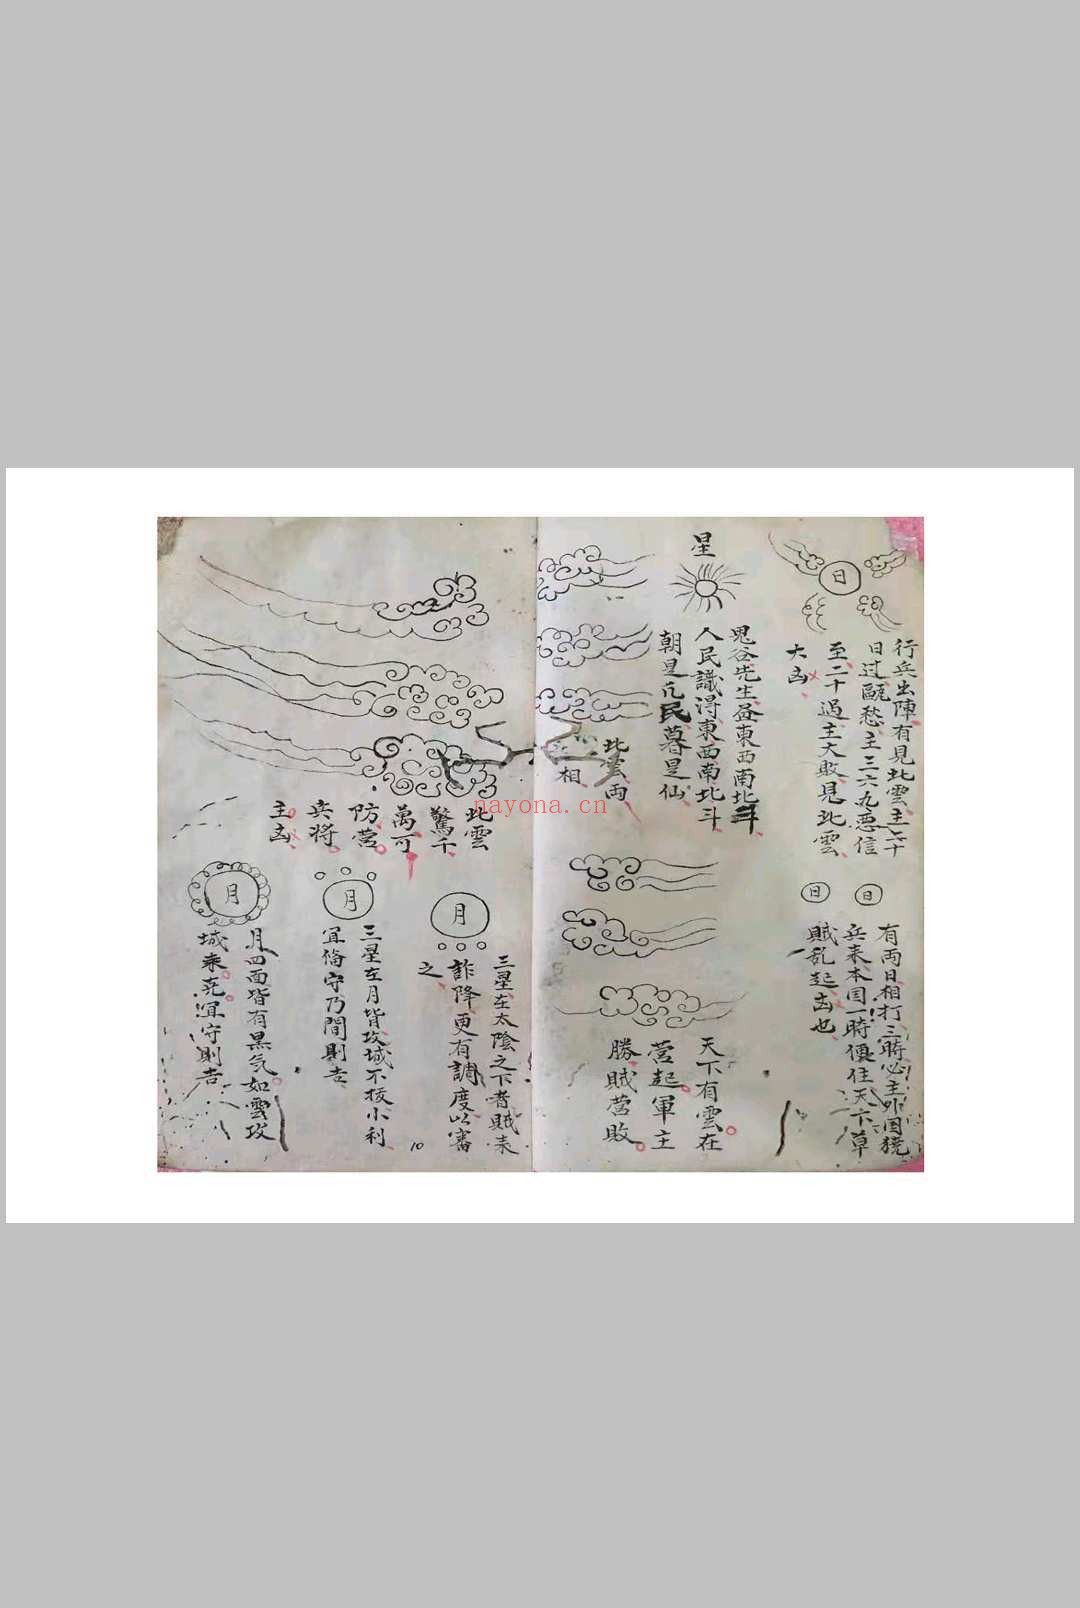 日
行兵出陣有見此雲主二十
日过甌愁主三六九惡信
至二十過主大敗見此雲
大凶
星
鬼谷先生畫東西南北斗
人民識得東西南北斗
朝是凡民暮是仙
此雲両
相
日
日
有両日相打三時必主外国
兵来本国一時便住天下草
賊乱起凶也
天下有雲在
营起軍主
勝賊营敗
此雲
驚千
萬可
防营
兵将
主凶
月
三星在太陰之下者賊来
詐降更有調度以審
之
月
三星在月皆攻城不拔小利
宜俻守乃間則吉
月
月四面皆有黒気如雲攻
城来宜守則吉
10
nayona.cn